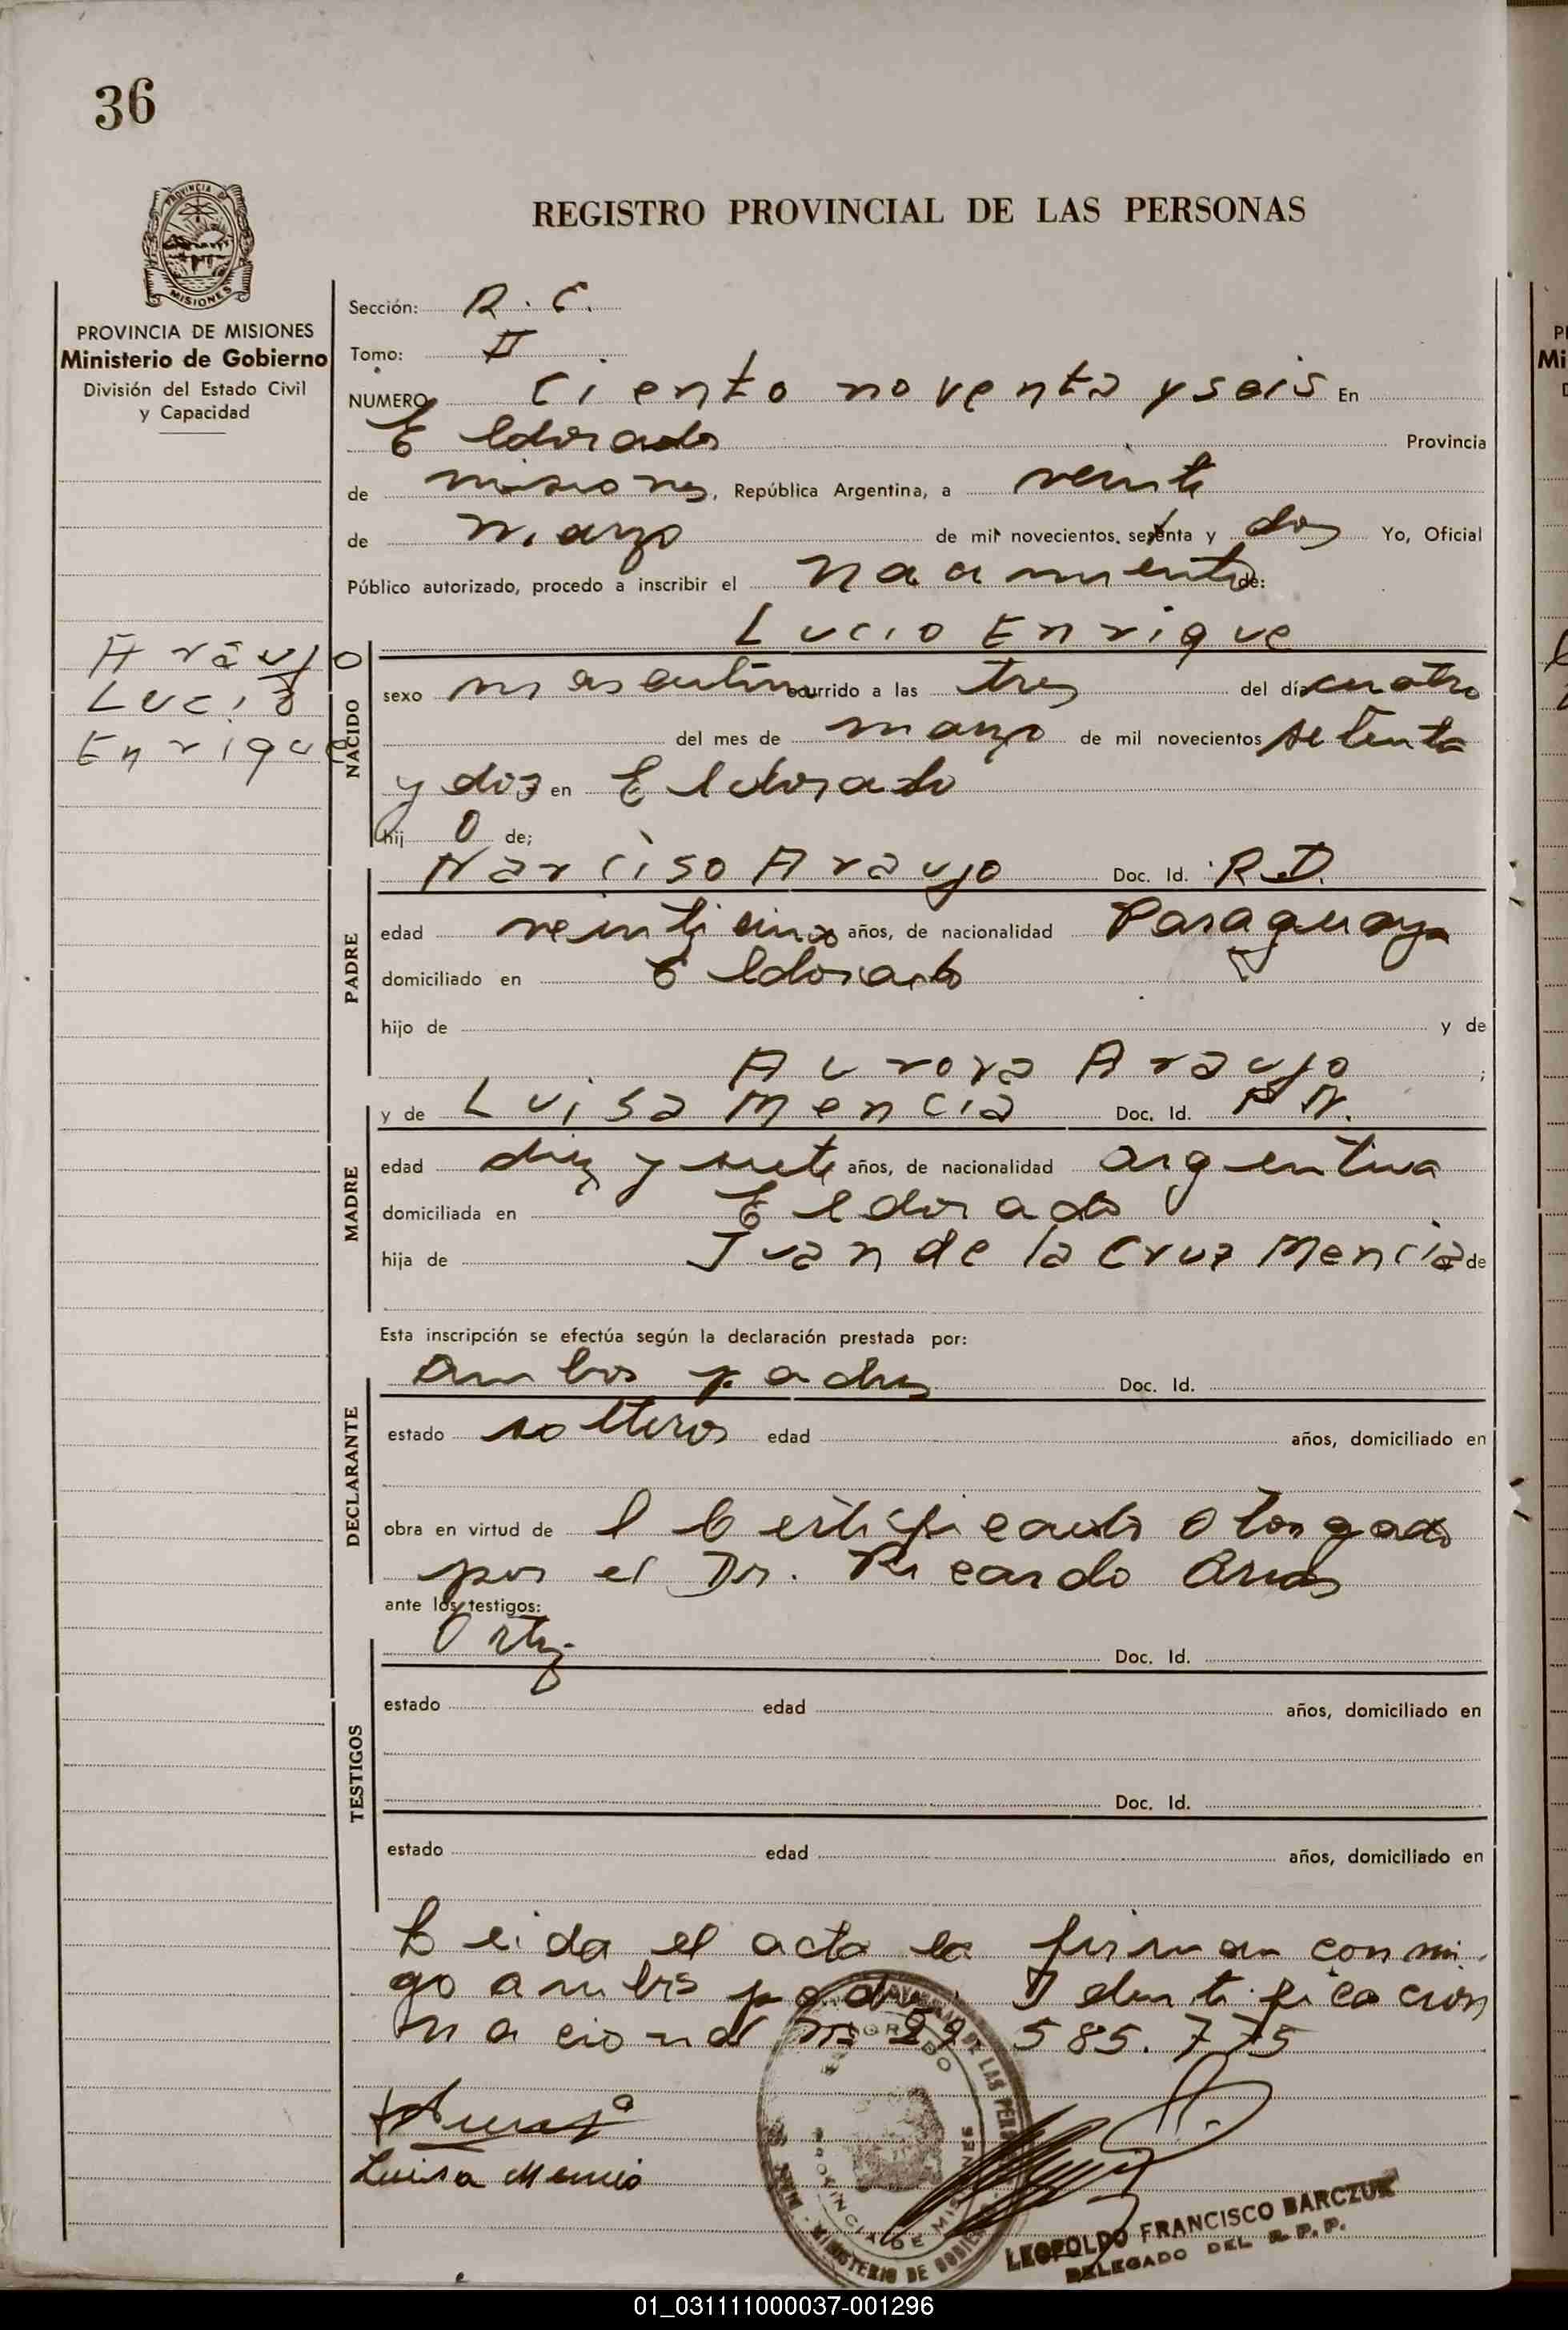 36
PROVINCIA DE MISIONES
REGISTRO PROVINCIAL DE LAS PERSONAS
PROVINCIA DE MISIONES
Ministerio de Gobierno
División del Estado Civil
y Capacidad
Sección: R. C.
Tomo: II
NUMERO Ciento noventa y seis En
Eldorado Provincia
de misiones, República Argentina, a veinte
de marzo de mil novecientos setenta y dos Yo, Oficial
Público autorizado, procedo a inscribir el Nacimiento de:
Lucio Enrique
Araujo
Lucio
Enrique
NACIDO
sexo masculino ocurrido a las tres del día cuatro
del mes de marzo de mil novecientos setenta
y dos en Eldorado
hij o de;
PADRE
Narciso Araujo Doc. Id. R.D.
edad veinticinco años, de nacionalidad Paraguaya
domiciliado en Eldorado
hijo de y de
Aurora Araujo ;
MADRE
y de Luisa Mencia Doc. Id. N.
edad diez y siete años, de nacionalidad argentina
domiciliada en Eldorado
hija de Juan de la Cruz Mencia de
Esta inscripción se efectúa según la declaración prestada por:
DECLARANTE
Ambos padres Doc. Id.
estado solteros edad años, domiciliado en
obra en virtud de l Certificado otorgado
por el Dr. Ricardo Arias
ante los testigos:
TESTIGOS
Ortiz Doc. Id.
estado edad años, domiciliado en
Doc. Id.
estado edad años, domiciliado en
Leida el acta la firman conmi
go ambos padres Identificacion
nacional nº 22.585.775
Araujo
Luisa Mencia
LEOPOLDO FRANCISCO BARCZUK
DELEGADO DEL R.P.P.
01_031111000037-001296